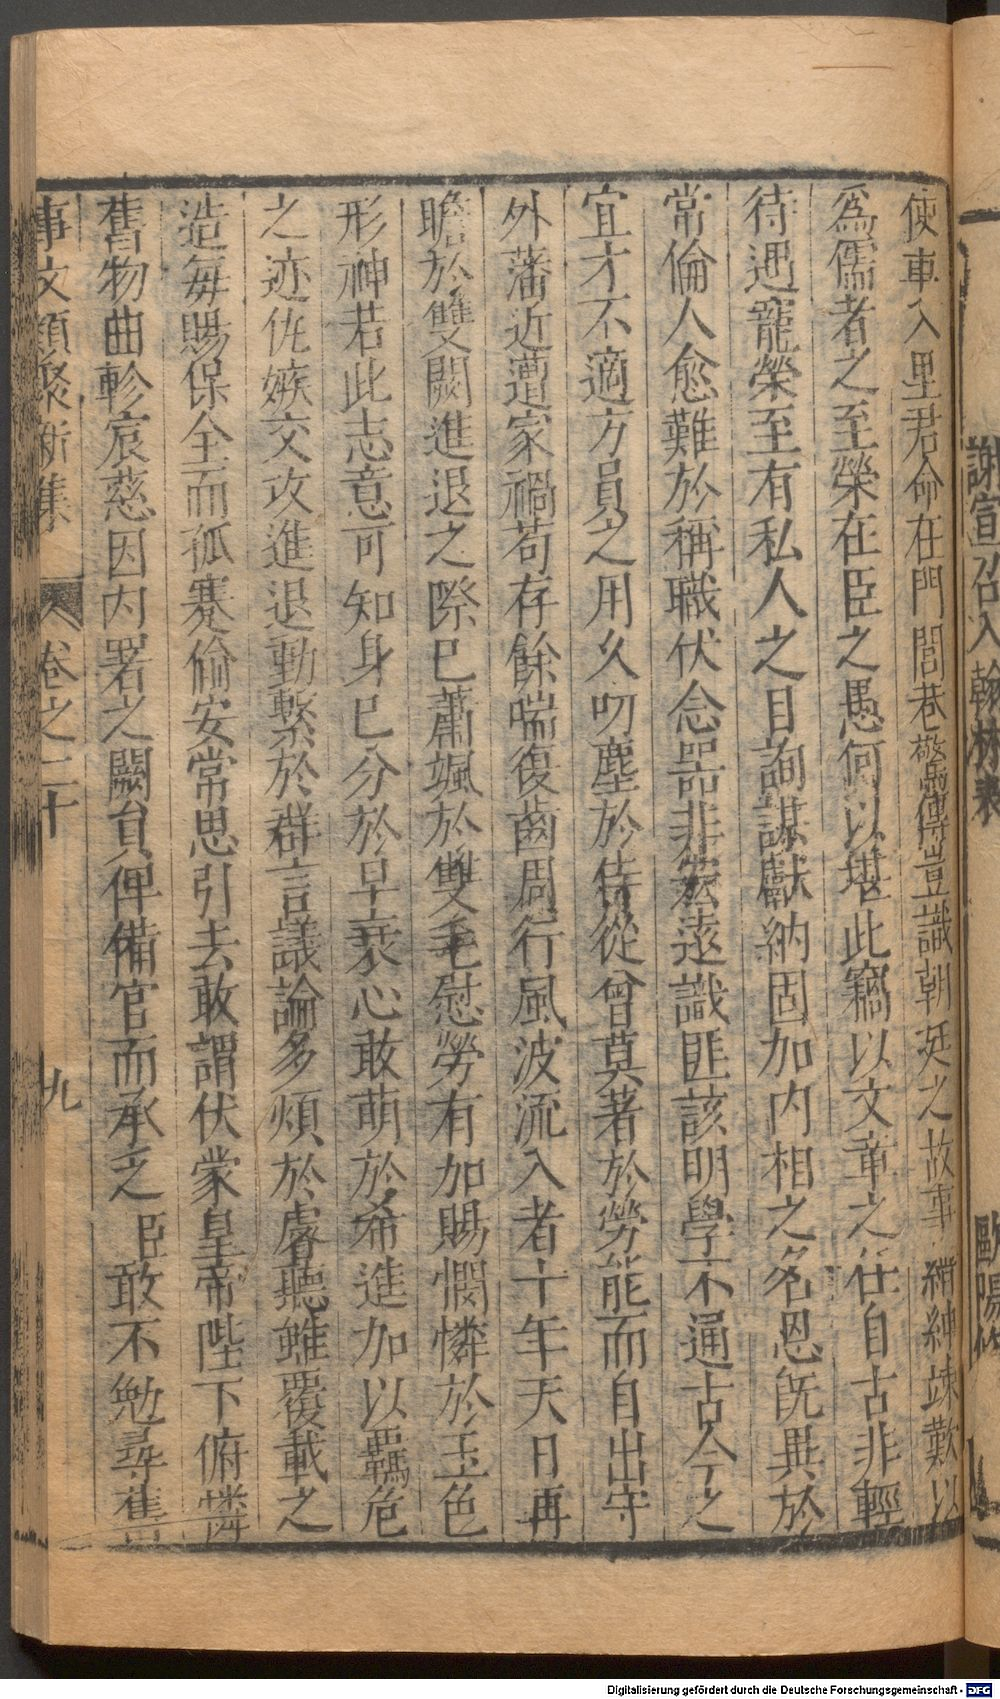 謝宣召入翰林表　歐陽脩
使車入里君命在門閭巷驚傳豈識朝廷之故事縉紳竦歎以
爲儒者之至榮在臣之愚何以堪此竊以文章之任自古非輕
待遇寵榮至有私人之目詢謀獻納固加内相之名恩旣異於
常倫人愈難於稱職伏念器非宏遠識匪該明學不通古今之
宜才不適方員之用久叨塵於侍從曾莫著於勞能而自出守
外藩近遭家禍苟存餘喘復齒周行風波流入者十年天日再
瞻於雙闕進退之際已蕭颯於雙毛慰勞有加賜憫憐於玉色
形神若此志意可知身已分於早衰心敢萌於希進加以羈危
之迹仇嫉交攻進退動繫於群言議論多煩於睿聽雖覆載之
造每賜保全而孤蹇偷安常思引去敢謂伏蒙皇帝陛下俯憐
舊物曲軫宸慈因内署之闕員俾備官而承乏臣敢不勉尋舊
事文類聚新集　卷之二十　九
Digitalisierung gefördert durch die Deutsche Forschungsgemeinschaft - DFG